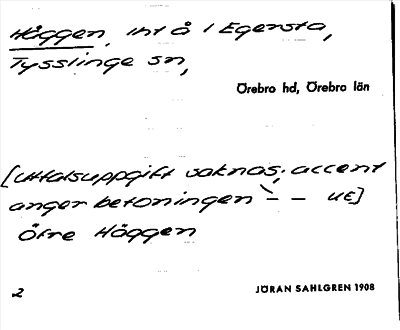 Häggen, int å i Egersta,
Tysslinge sn,
Örebro hd, Örebro län
[Uttalsuppgift saknas; accent
anger betoningen `– – UE]
Öfre Häggen
2 JÖRAN SAHLGREN 1908